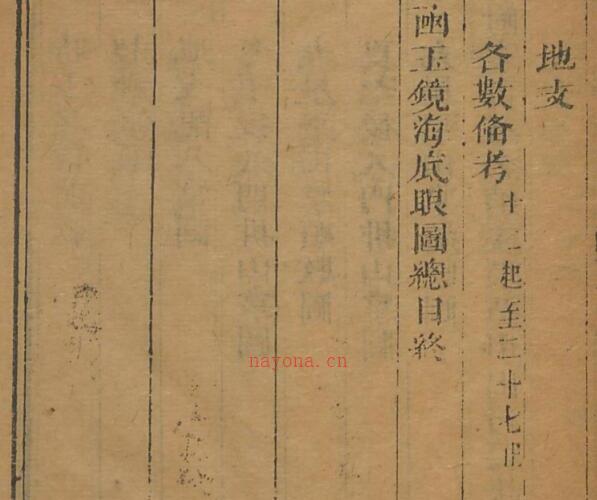 地支
各數俻考 十二起至 十七止
函玉鏡海底眼圖總目終
nayona.cn